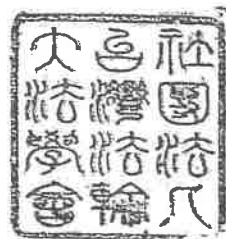 社團法人
台灣法輪
大法學會